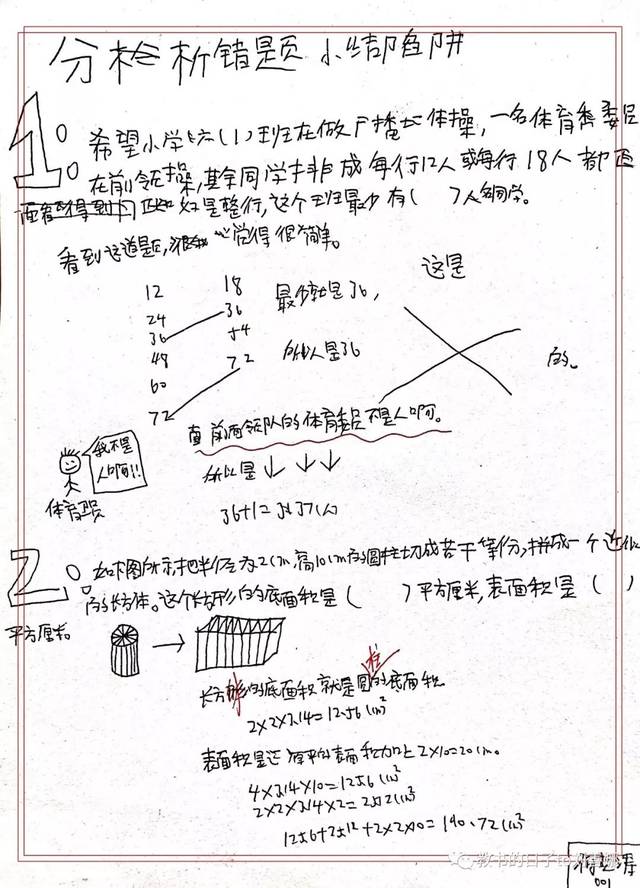 分析错题 小结陷阱
1.
希望小学六(1)班在做广播体操，一名体育委员
在前领操，其余同学排成每行12人或每行18人都
正好是整行，这个班最少有( )人同学。
看到这道题，觉得很简单。
12 18
24 36
36 54
48 72
60
72
最少就是36，
所以是36
这是
的。
前面领队的体育委员不是人啊。
我不是
人啊!!
体育委员
所以是 ↓ ↓ ↓
36+1=37(人)
2.
如图所示,把半径为2cm,高10cm的圆柱切成若干等份,拼成一个近似
的长方体。这个长方形的底面积是( )平方厘米,表面积是( )
平方厘米。
柱
长方形的底面积就是圆的底面积
2×2×3.14=12.56(cm²
表面积是 原来的表面积加上2×10=20cm。
4×3.14×10=125.6(cm²
2×2×3.14×2=25.12(cm²
125.6+25.12+2×2×10=190.72(cm²
教书的日子
001